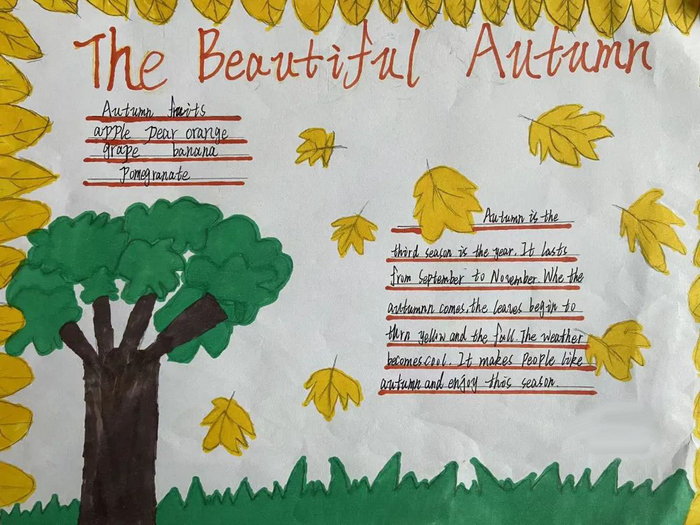 The Beautiful Autumn
Autumn fruits
apple pear orange
grape banana
Pomegranate
Autumn is the
third season is the year. It lasts
from september to November. Whe the
autumnn comes, the leaves begin to
thrn yellow and the full. The weather
becomes cool. It makes people like
autumn and enjoy this season.